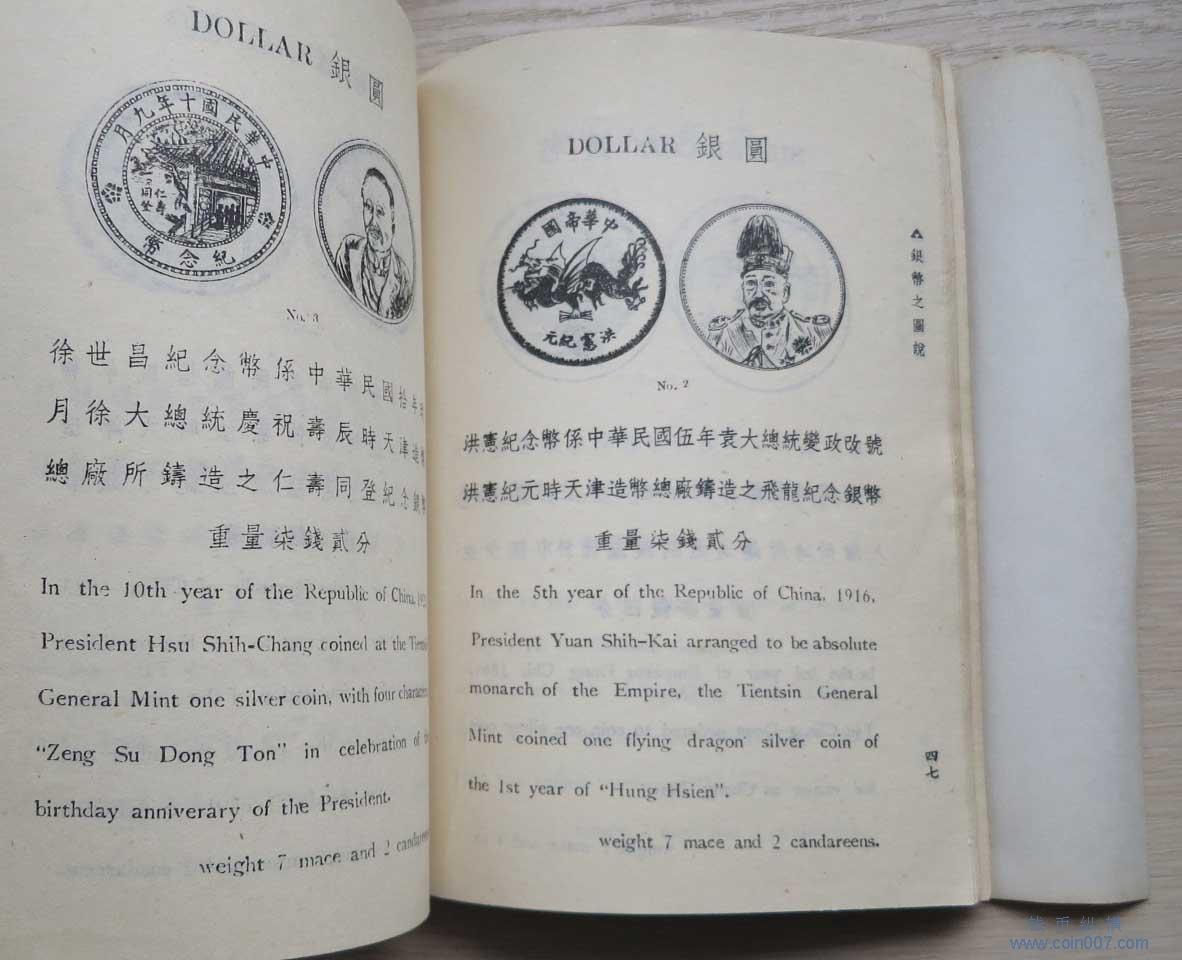 DOLLAR 銀圓
中華民國十年九月
仁壽同登
紀念幣
No. 3
徐世昌紀念幣係中華民國拾年
月徐大總統慶祝壽辰時天津造幣
總廠所鑄造之仁壽同登紀念銀幣
重量柒錢貳分
In the 10th year of the Republic of China,
President Hsu Shih-Chang coined at the
General Mint one silver coin, with four
"Zeng Su Dong Ton" in celebration of
birthday anniverary of the President.
weight 7 mace and 2
DOLLAR 銀圓
中華帝國
洪憲紀元
No. 2
洪憲紀念幣係中華民國伍年袁大總統變政改號
洪憲紀元時天津造幣總廠鑄造之飛龍紀念銀幣
重量柒錢貳分
In the 5th year of the Republic of China, 1916,
President Yuan Shih-Kai arranged to be absolute
monarch of the Empire, the Tientsin General
Mint coined one flying dragon silver coin of
the 1st year of "Hung Hsien".
weight 7 mace and 2 candareens.
銀幣之圖說
四七
www.coin007.com